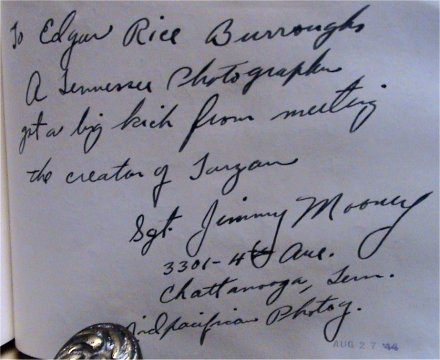 To Edgar Rice Burroughs
A Tennessee Photographer
got a big kick from meeting
the creator of Tarzan
Sgt. Jimmy Mooney
3301-4th Ave.
Chattanooga, Tenn.
Midpacifican Photog.
AUG 27 '44